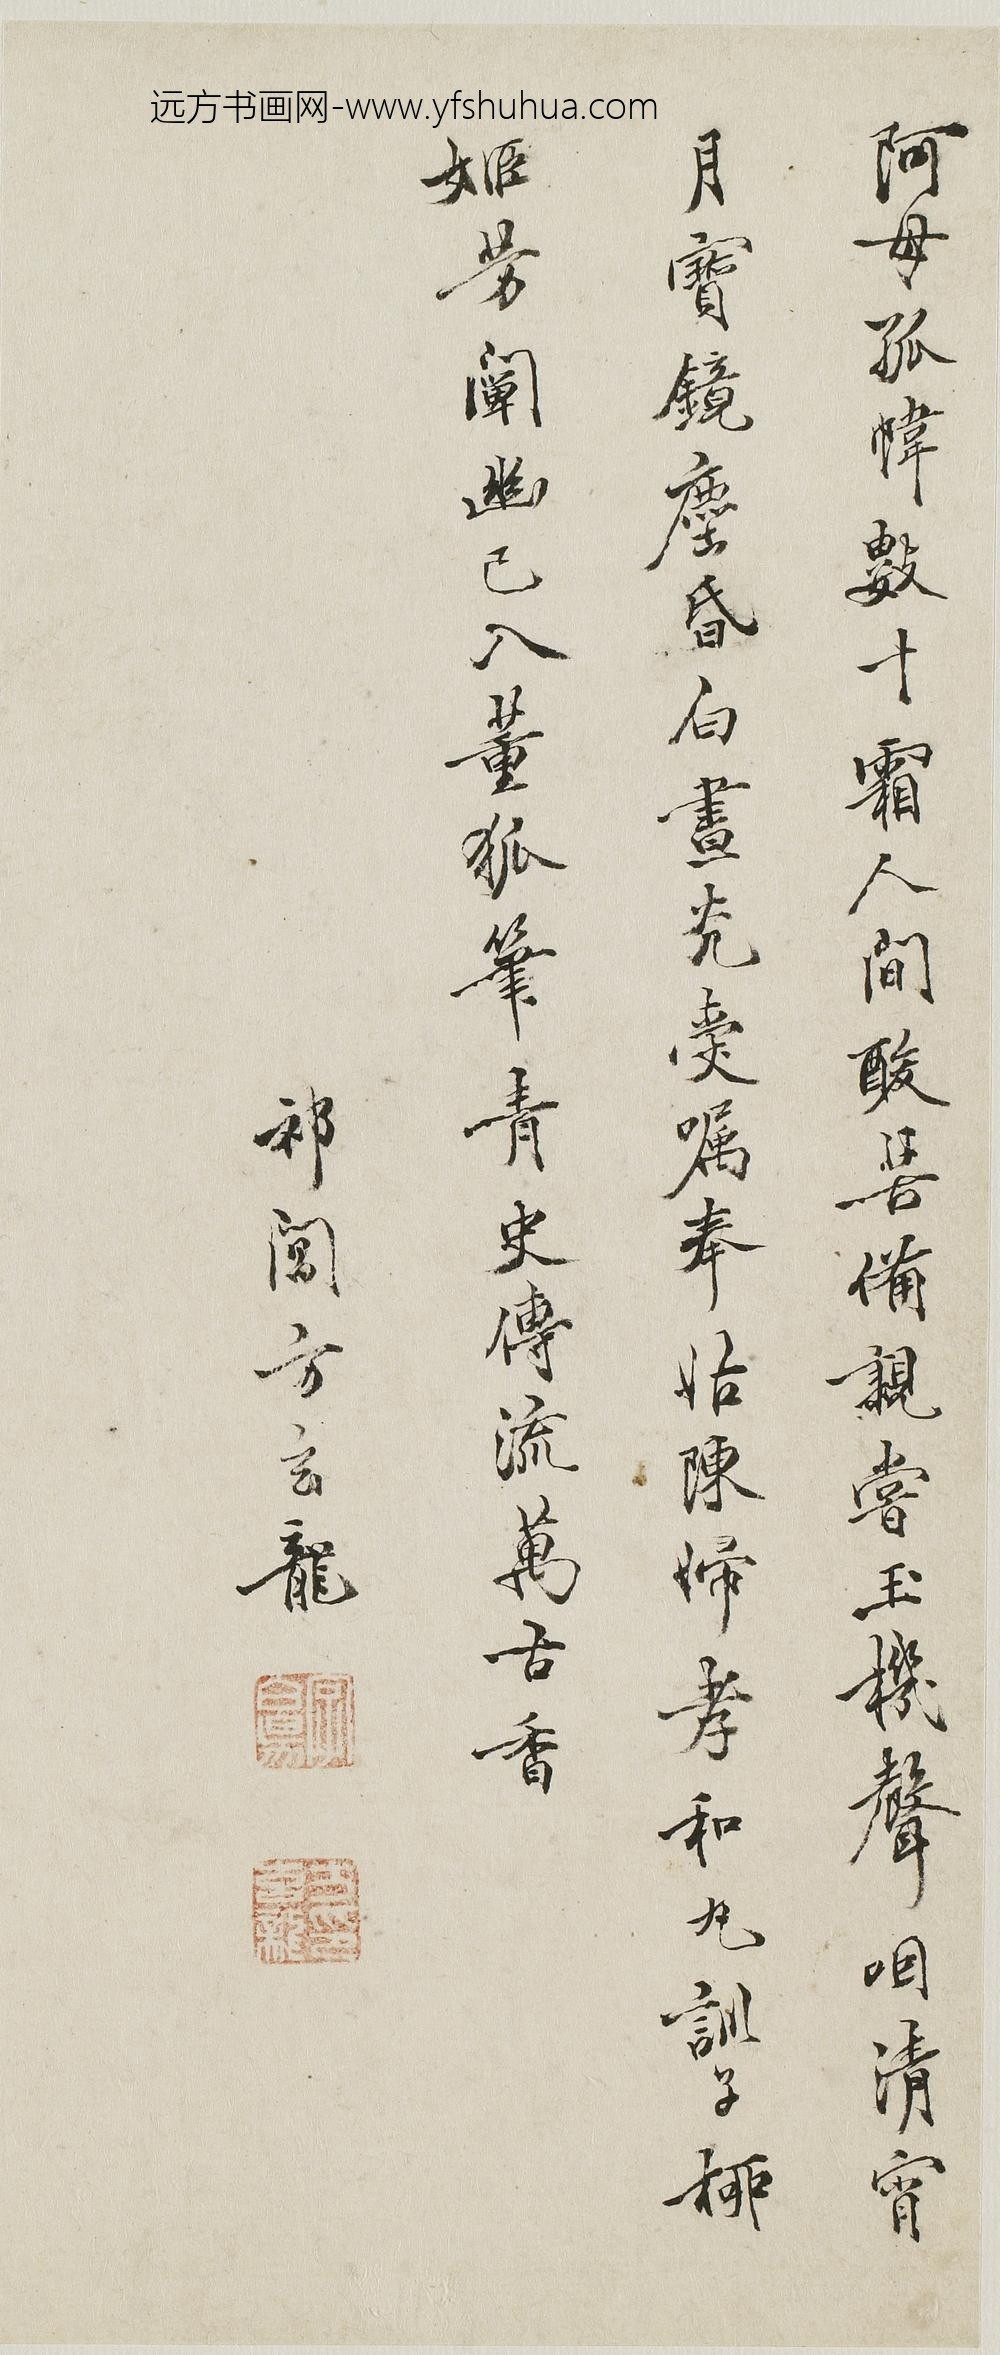 远方书画网-www.yfshuhua.com
阿母孤幃數十霜人間酸苦備親嘗玉機聲咽清宵
月寳鏡塵昏白晝光受嘱奉姑陳婦孝和丸訓子柳
姬芳闡幽已入董狐筆青史傳流萬古香
祁閶方玄龍